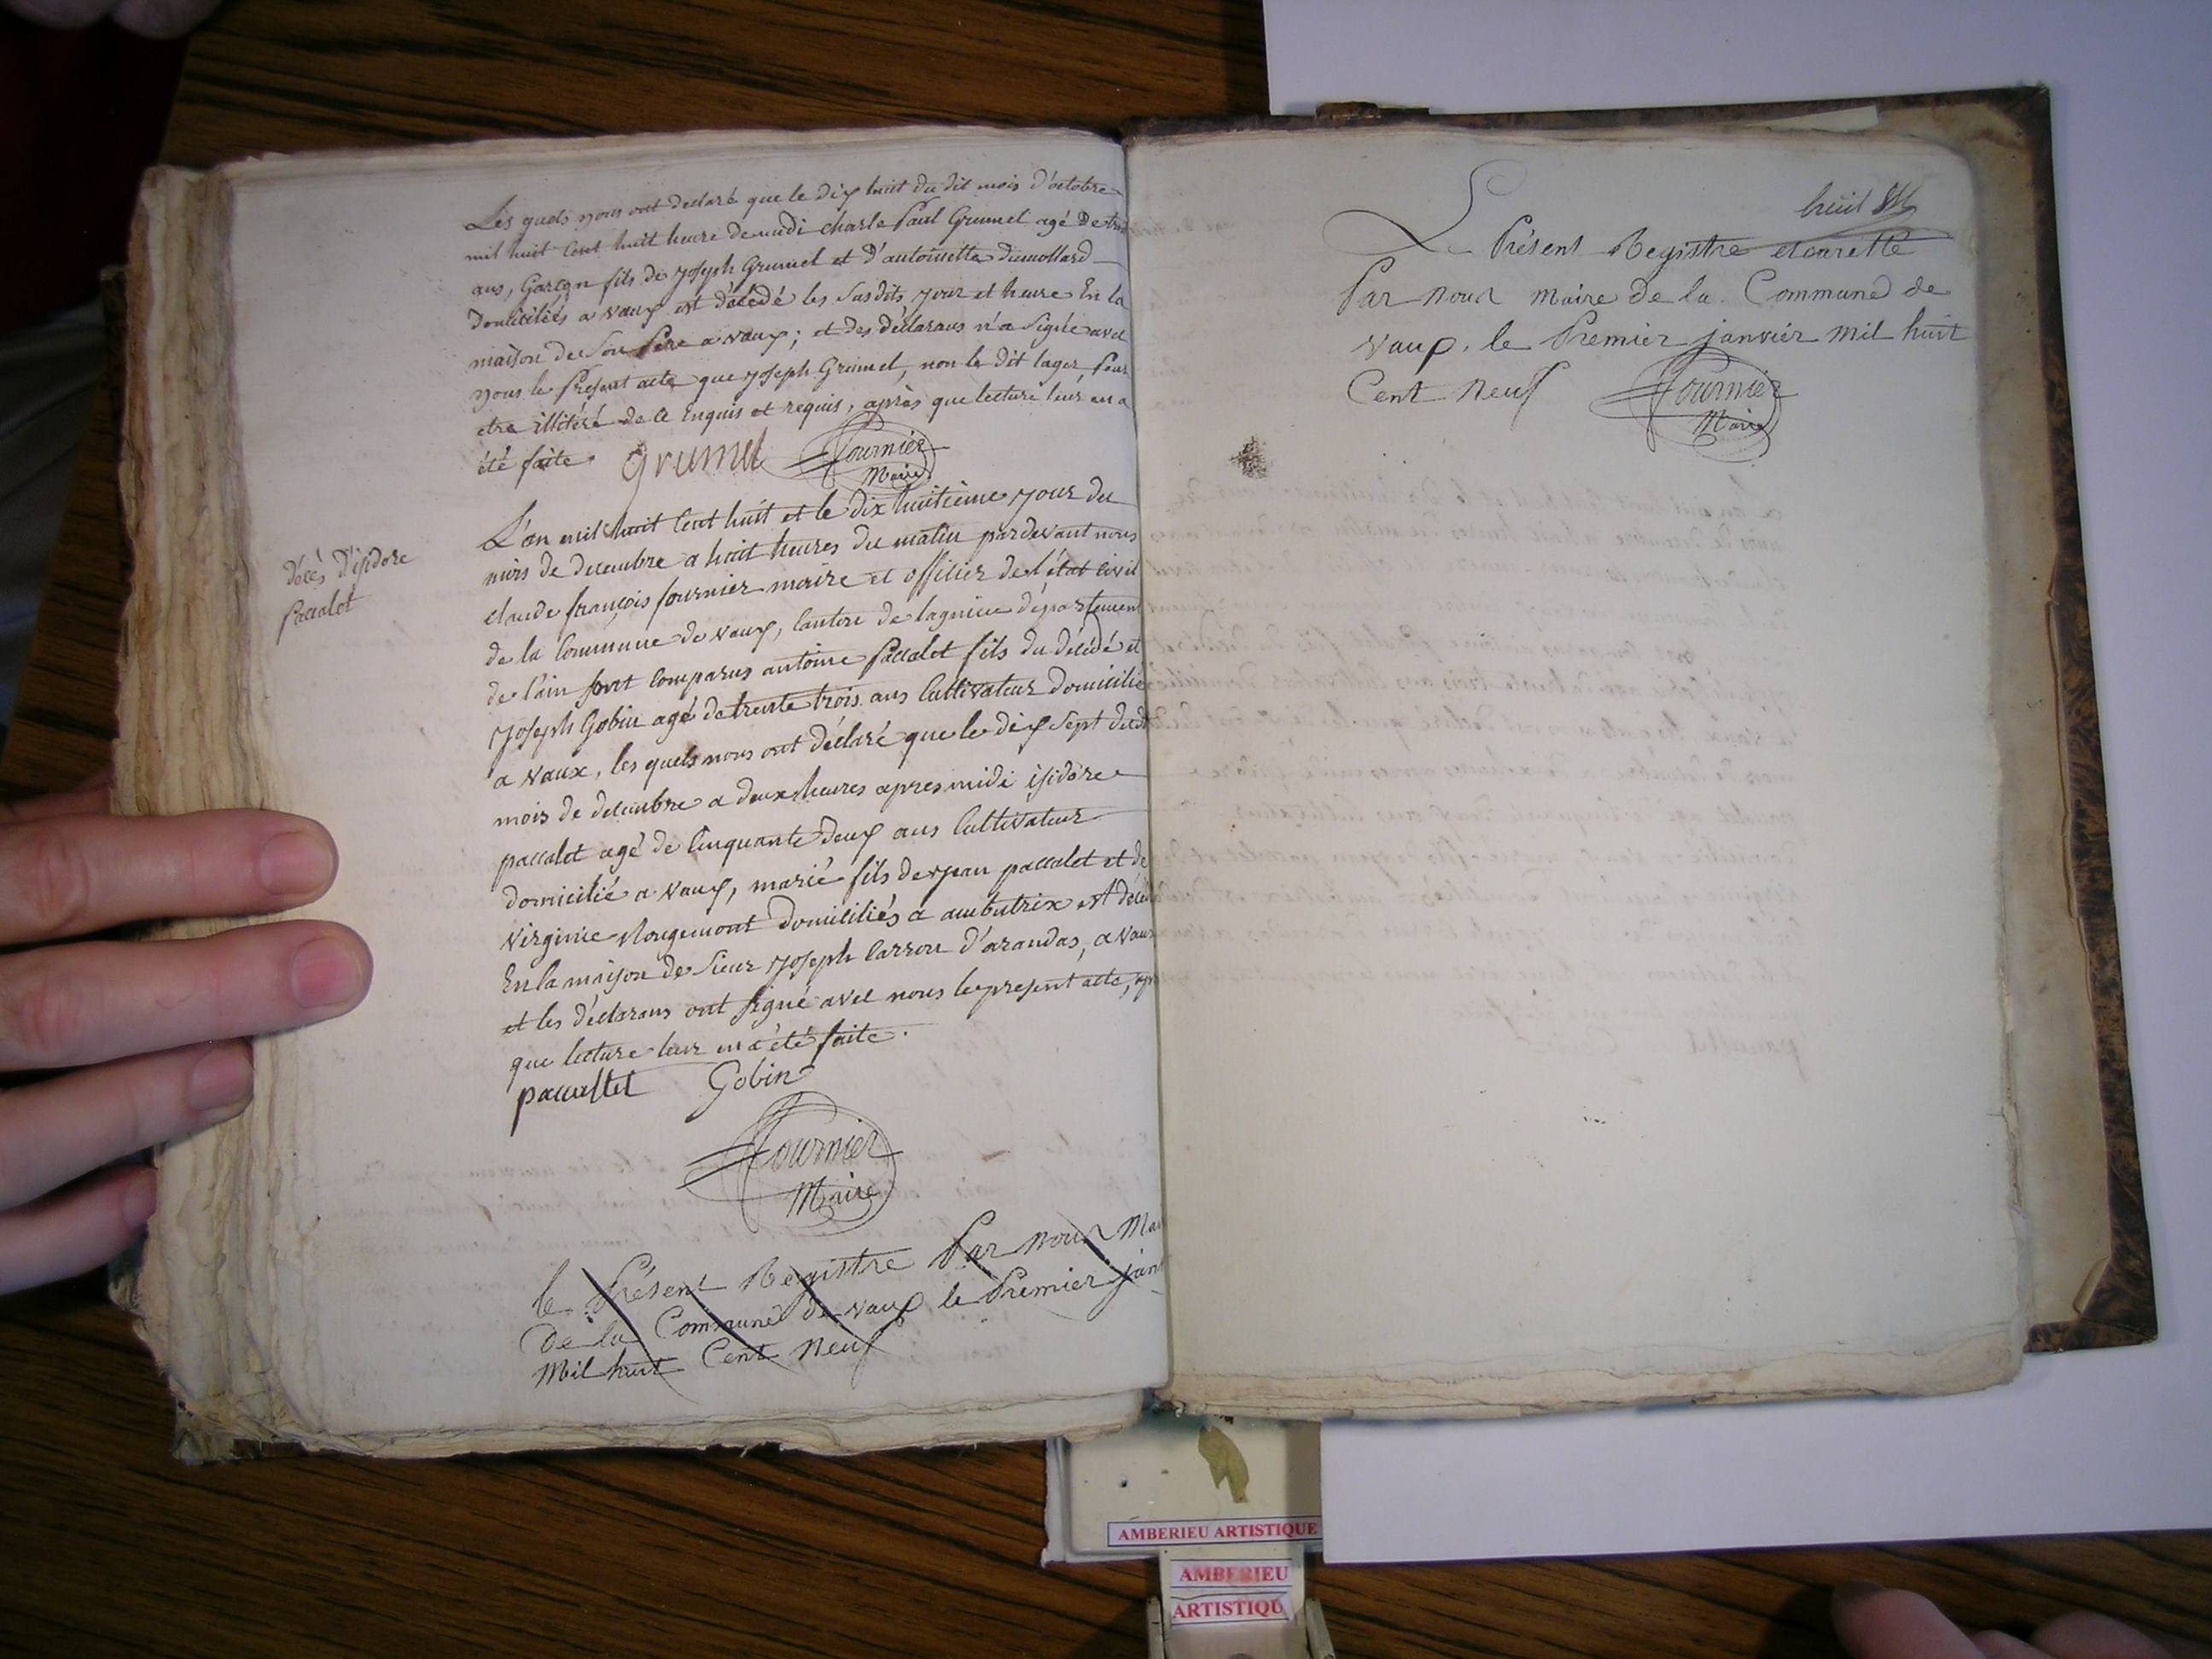 Les quels nous ont declaré que le dix huit du dit mois d'octobre
mil huit Cent huit heure de midi charle Paul Grumel agé de trois
ans, Garçon fils de joseph Grumel et d'antoinette dumollard
Domiciliés a vaux est décédé les susdits jour et heure En la
maison de Son Père a vaux; et des déclarans n'a Signé avec
nous le Présent acte que joseph Grumel, non le dit lager Pour
etre illitéré de ce Enquis et requis, après que lecture leur en a
été faite. Grumel Fournier
Maire
décès d'isidore
Paccalet
L'an mil huit Cent huit et le dix huitième jour du
mois de decembre a huit heures du matin pardevant nous
claude françois fournier maire et officier de l'état civil
de la Commune de vaux, Canton de lagnieu département
de l'ain sont Comparus antoine Paccalet fils du décédé et
joseph Gobin agé de trente trois ans Cultivateur Domicilié
a vaux, les quels nous ont déclaré que le dix sept dudit
mois de decembre a deux heures apres midi isidore
paccalet agé de Cinquante deux ans Cultivateur
domicilié a vaux, marié fils de jean paccalet et de
virginie Rougemont Domiciliés a ambutrix est décédé
En la maison de Sieur joseph Carron d'arandas, a vaux
et les déclarans ont signé avec nous le present acte, après
que lecture leur en a été faite.
paccallet Gobin
Fournier
Maire
le Présent Registre Par nous Ma
De la Commune de vaux le Premier janv
Mil huit Cent neuf
huit
Le Présent Registre et arretté
Par nous Maire de la Commune de
vaux, le Premier janvier Mil huit
Cent neuf Fournier
Maire
AMBERIEU ARTISTIQUE
AMBERIEU
ARTISTIQU